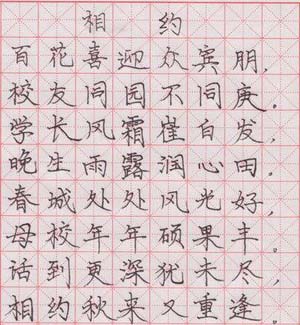 相约
百花喜迎众宾朋，
校友同园不同庚。
学长风霜催白发，
晚生雨露润心田。
春城处处风光好，
母校年年硕果丰。
话到更深犹未尽，
相约秋来又重逢。